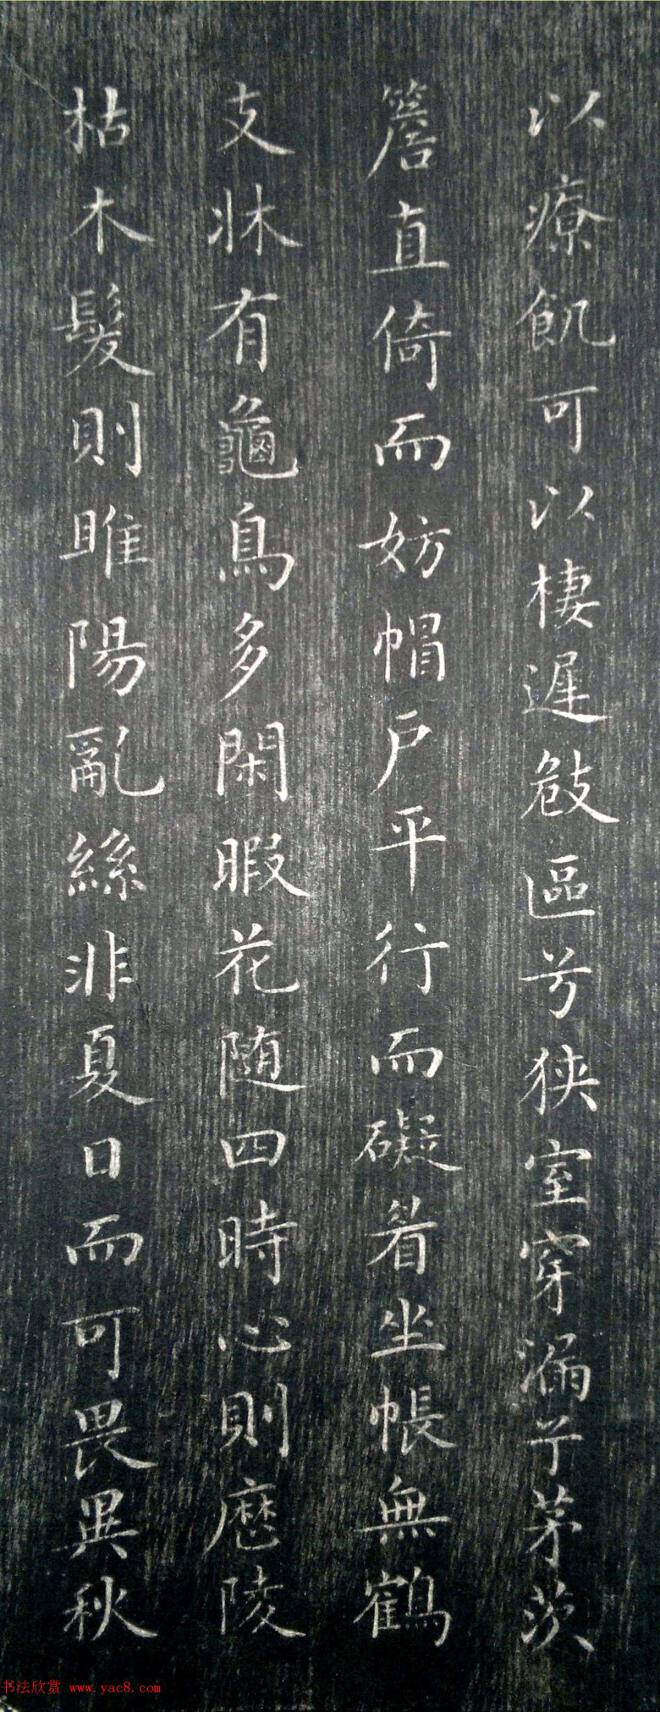 以療飢可以棲遲攲區兮狹室穿漏兮茅茨
簷直倚而妨帽戶平行而礙眉坐帳無鶴
支牀有龜鳥多閑暇花随四時心則歷陵
枯木髮則睢陽亂絲非夏日而可畏異秋
书法欣赏 www.yac8.com